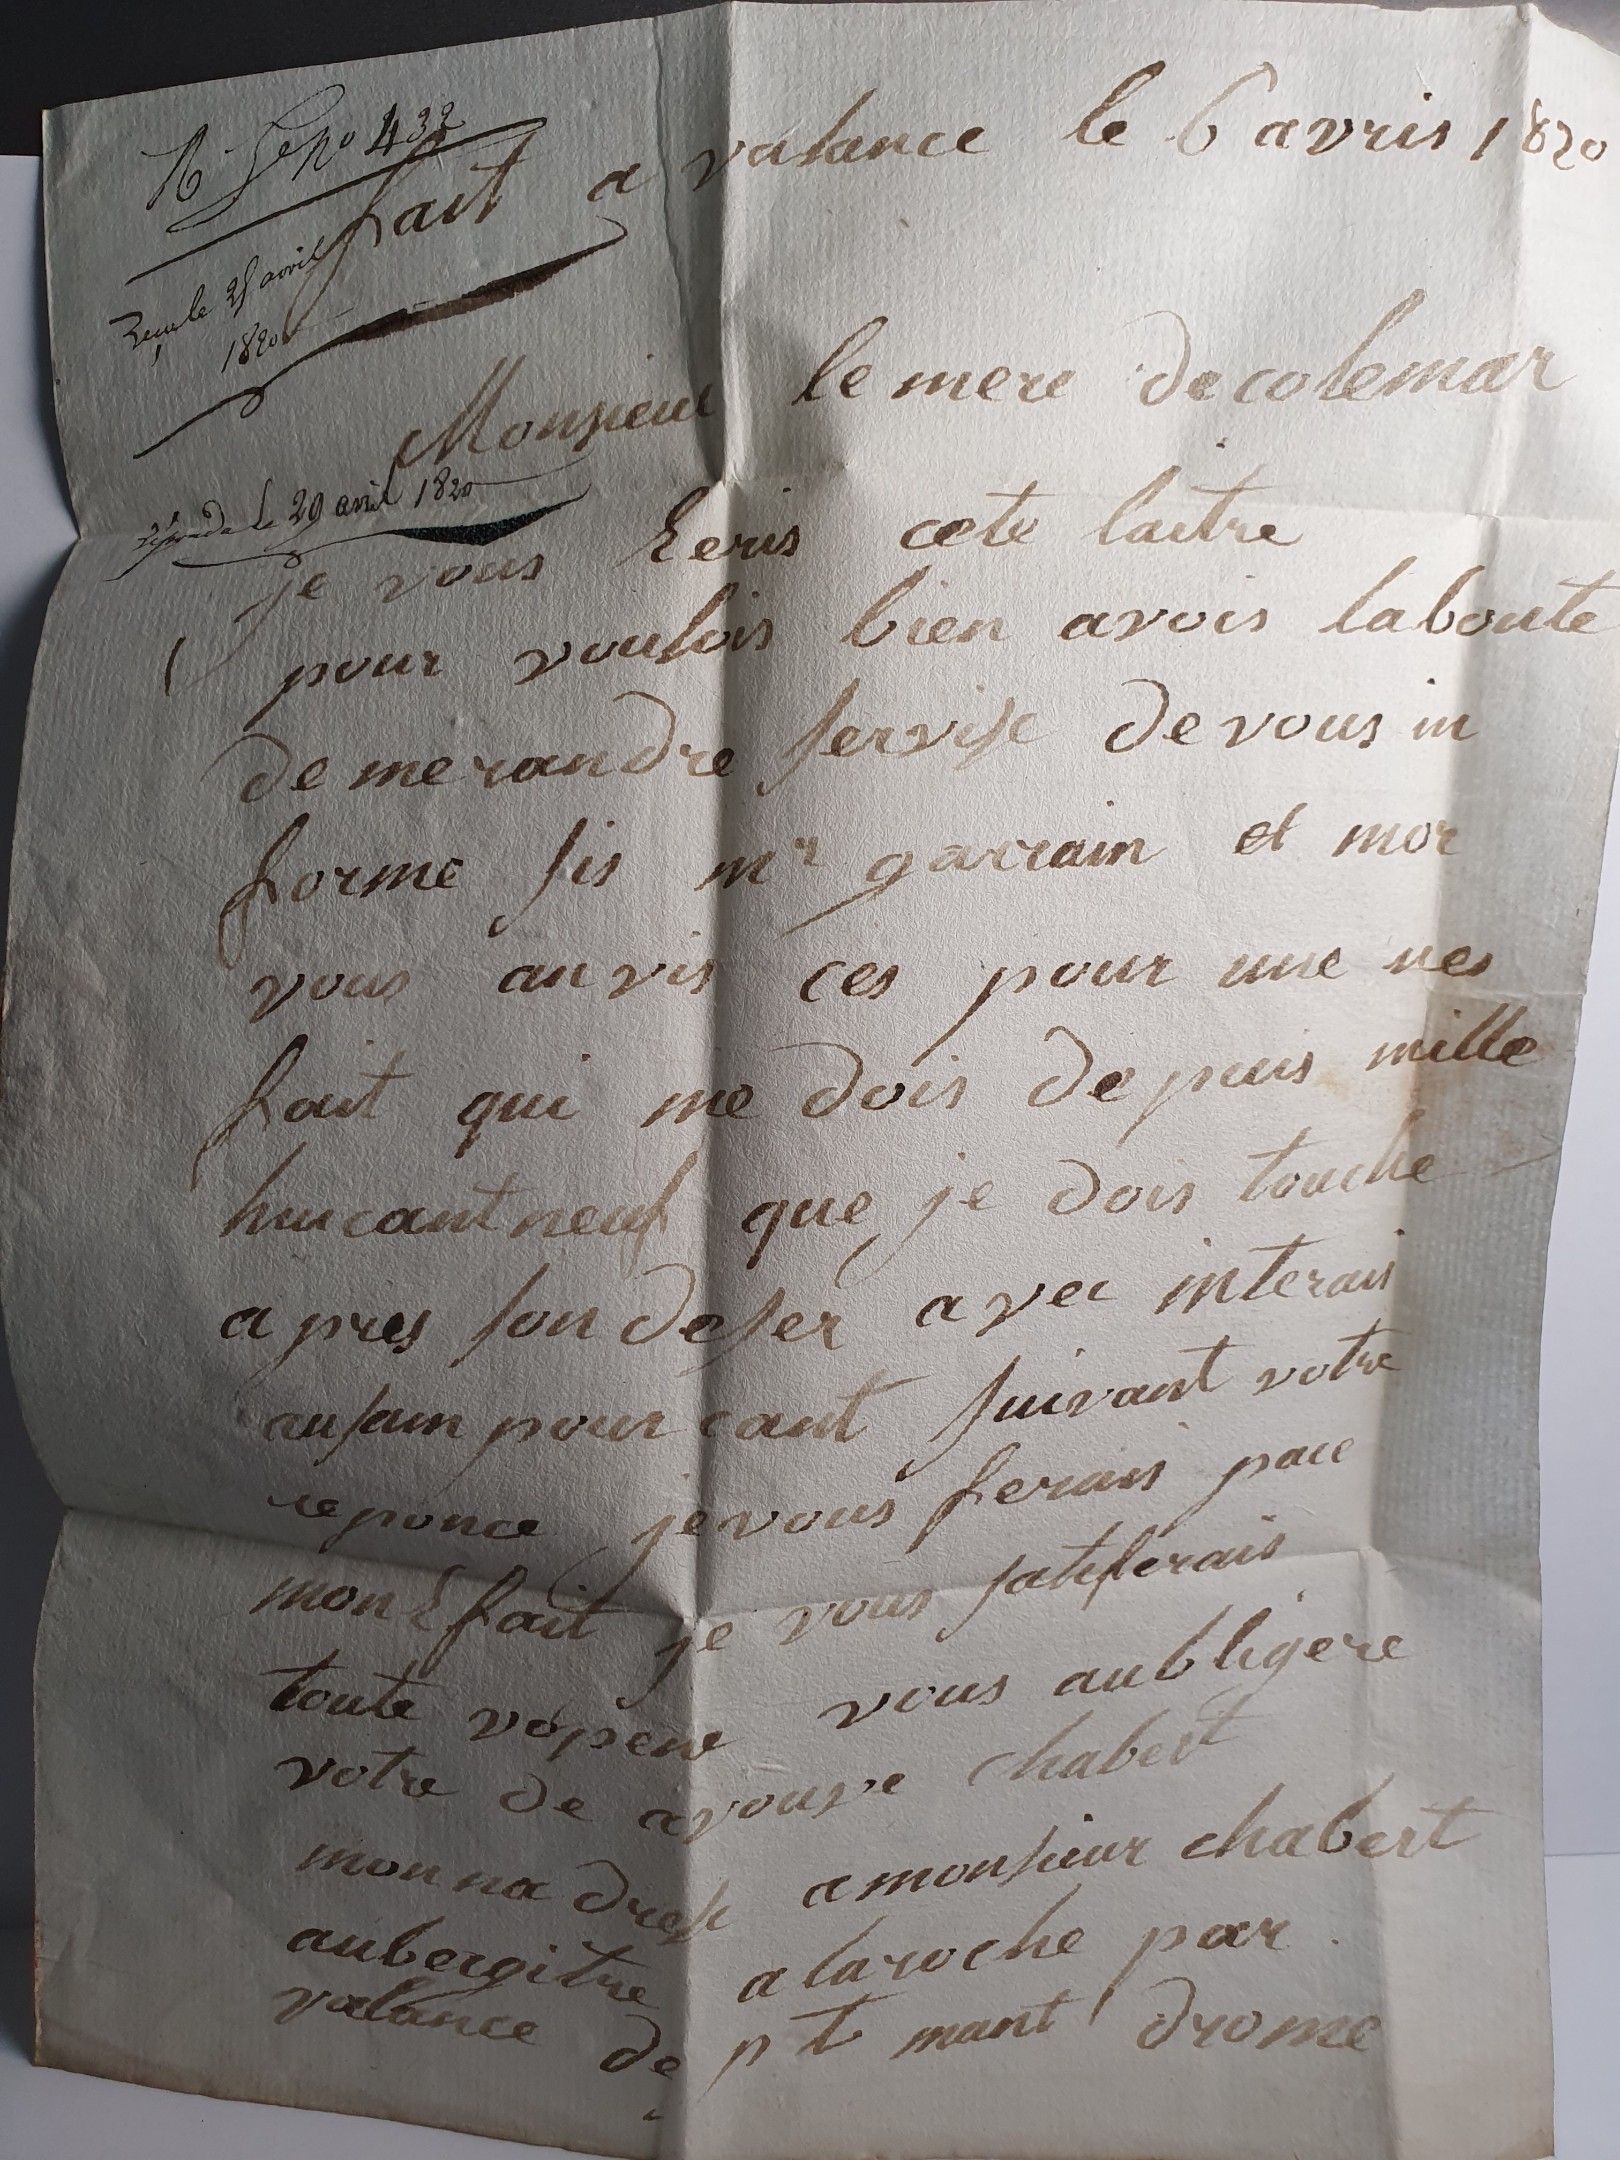 432
fait a valance le 6 avris 1820
le 25 avril
1820
Monsieur le mere de colemar
le 29 avril 1820
je vous Ecris cete laitre
pour voulois bien avois laboute
de merandre servise de vous in
forme sis mr garrain et mor
vous anvis ces pour une nes
fait qui me dois depuis mille
huicant neuf que je dois touche
a pres son deser avec interais
ausain pour cant suivant votre
reponce je vous ferais pace
mon E fait je vous satiferais
toute vopene vous aubligere
votre de avouse chabert
mon na drese a monsieur chabert
aubergitre a laroche par
valance de p t mant drome